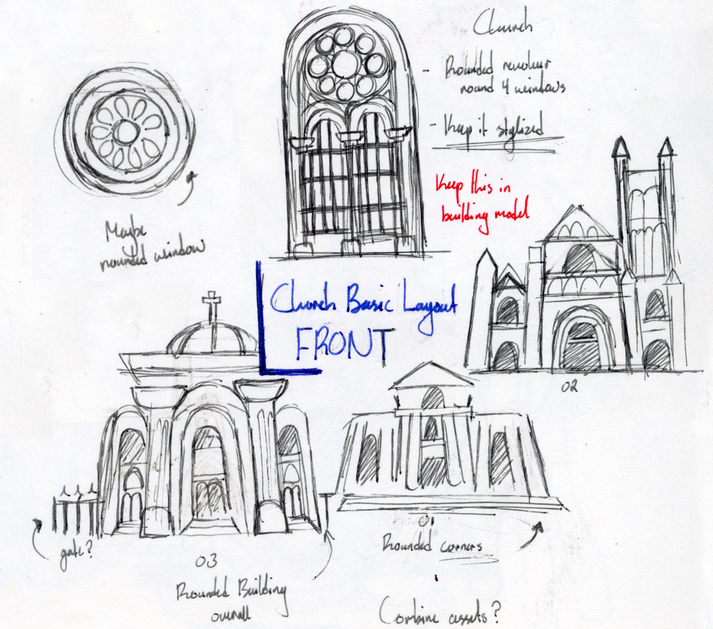 Church
- Rounded
round 4 windows
- Keep it stylized
Keep this in
building model
Maybe
rounded window
Church Basic Layout
FRONT
02
gate?
03
Rounded Building
overall
01
Rounded corners
Combine assets?